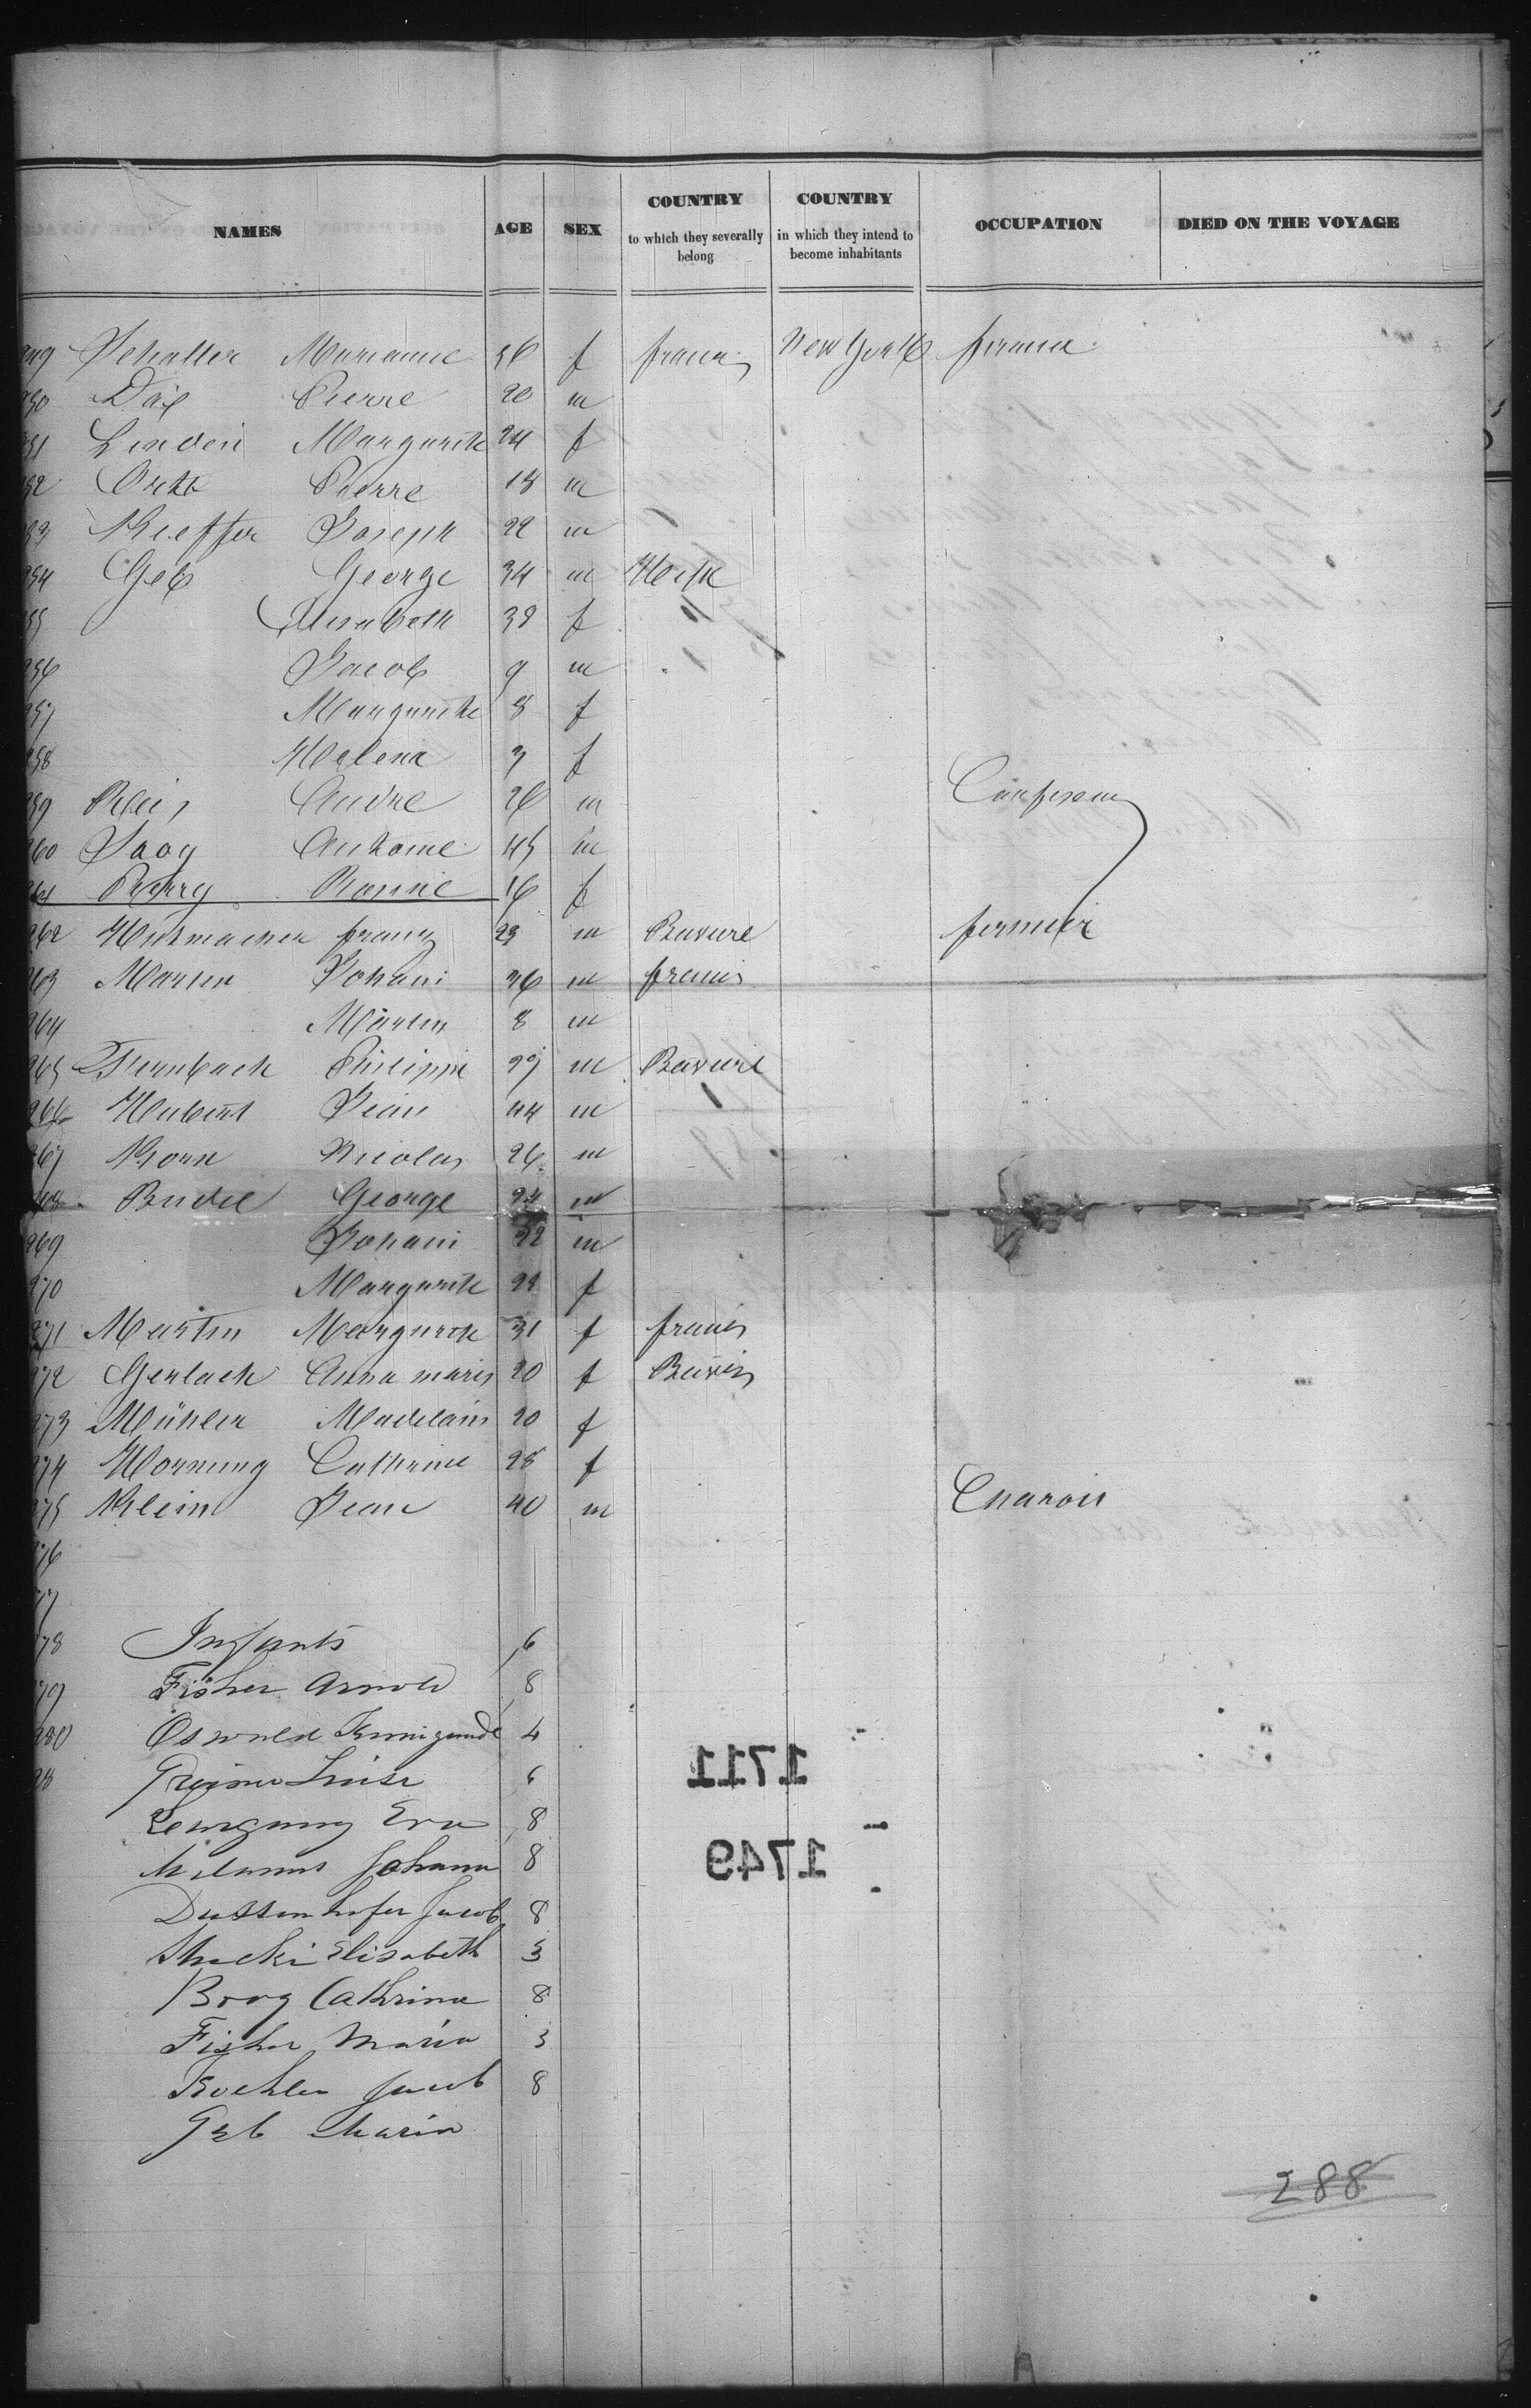 NAMES AGE SEX COUNTRY to which they severally belong COUNTRY in which they intend to become inhabitants OCCUPATION DIED ON THE VOYAGE
249 Schaller Marianne 56 f france New York
250 Pierre 20 m
251 Linden Margarite 24 f
252 Pierre 18 m
253 Kieffer Joseph 22 m
254 Geb George 34 m
255 Elisabeth 38 f
256 Jacob 9 m
257 Margarethe 8 f
258 Helena 3 f
259 Reis André 26 m
260 Antoine 45 m
261 16 f
262 Hutmacher franz 23 m Baviere fermier
263 Martin Johann 36 m francis
264 Martin 8 m
265 Philippe 29 m Baviere
266 Hubert Jean 44 m
267 Korn Nicolas 26 m
268 George 24 m
269 Johann 32 m
270 Margarite 28 f
271 Martin Margarite 31 f francis
272 Gerlach Anna maria 20 f
273 Mühler Madelain 20 f
274 Hornung Cathrine 28 f
275 Klein Jean 40 m
276
277
278 Infants 6
279 Fisher Arnold 8
280 Oswald Kunigunde 4
28 Luise 6
Eva 8
Johann 8
Dussenhofer Jacob 8
Elisabeth 3
Boog Cathrina 8
Fisher Maria 3
Koehler Jacob 8
Geb Maria
1711
1749
288